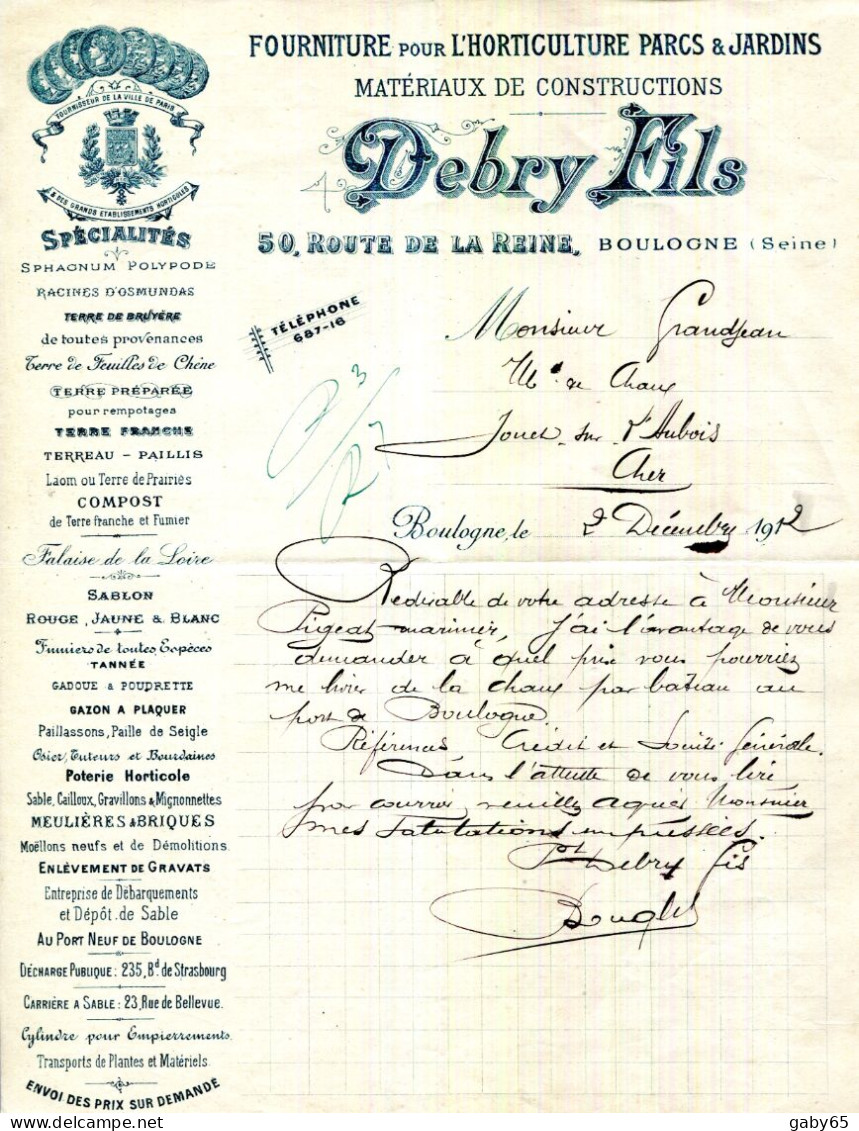 FOURNITURE POUR L'HORTICULTURE PARCS & JARDINS
MATÉRIAUX DE CONSTRUCTIONS
Debry Fils
50, ROUTE DE LA REINE, BOULOGNE (Seine)
FOURNISSEUR DE LA VILLE DE PARIS
& DES GRANDS ETABLISSEMENTS HORTICOLES
SPÉCIALITÉS
SPHAGNUM POLYPODE
RACINES D'OSMUNDAS
TERRE DE BRUYÈRE
de toutes provenances
Terre de Feuilles de Chêne
TERRE PRÉPARÉE
pour rempotages
TERRE FRANCHE
TERREAU - PAILLIS
Laom ou Terre de Prairies
COMPOST
de Terre franche et Fumier
Falaise de la Loire
SABLON
ROUGE, JAUNE & BLANC
Fumiers de toutes Espèces
TANNÉE
GADOUE & POUDRETTE
GAZON A PLAQUER
Paillassons, Paille de Seigle
Osier, Tuteurs et Bourdaines
Poterie Horticole
Sable, Cailloux, Gravillons & Mignonnettes
MEULIÈRES & BRIQUES
Moëllons neufs et de Démolitions
ENLÈVEMENT DE GRAVATS
Entreprise de Débarquements
et Dépôt de Sable
AU PORT NEUF DE BOULOGNE
DÉCHARGE PUBLIQUE : 235, Bd. de Strasbourg
CARRIÈRE A SABLE : 23, Rue de Bellevue.
Cylindre pour Empierrements
Transports de Plantes et Matériels
ENVOI DES PRIX SUR DEMANDE
TÉLÉPHONE
687-16
Monsieur Grandjean
Md de Chaux
Jouet sur l'Aubois
Cher
Boulogne, le 2 Décembre 1912
Redevable de votre adresse à Monsieur
Pigeat marinier, J'ai l'avantage de vous
demander à quel prix vous pourriez
me livrer de la chaux par bateau au
port de Boulogne.
Références Crédit et Société Générale.
Dans l'attente de vous lire
par courrier, veuillez agréer Monsieur
mes salutations empressées.
Pr Debry fils
gaby65